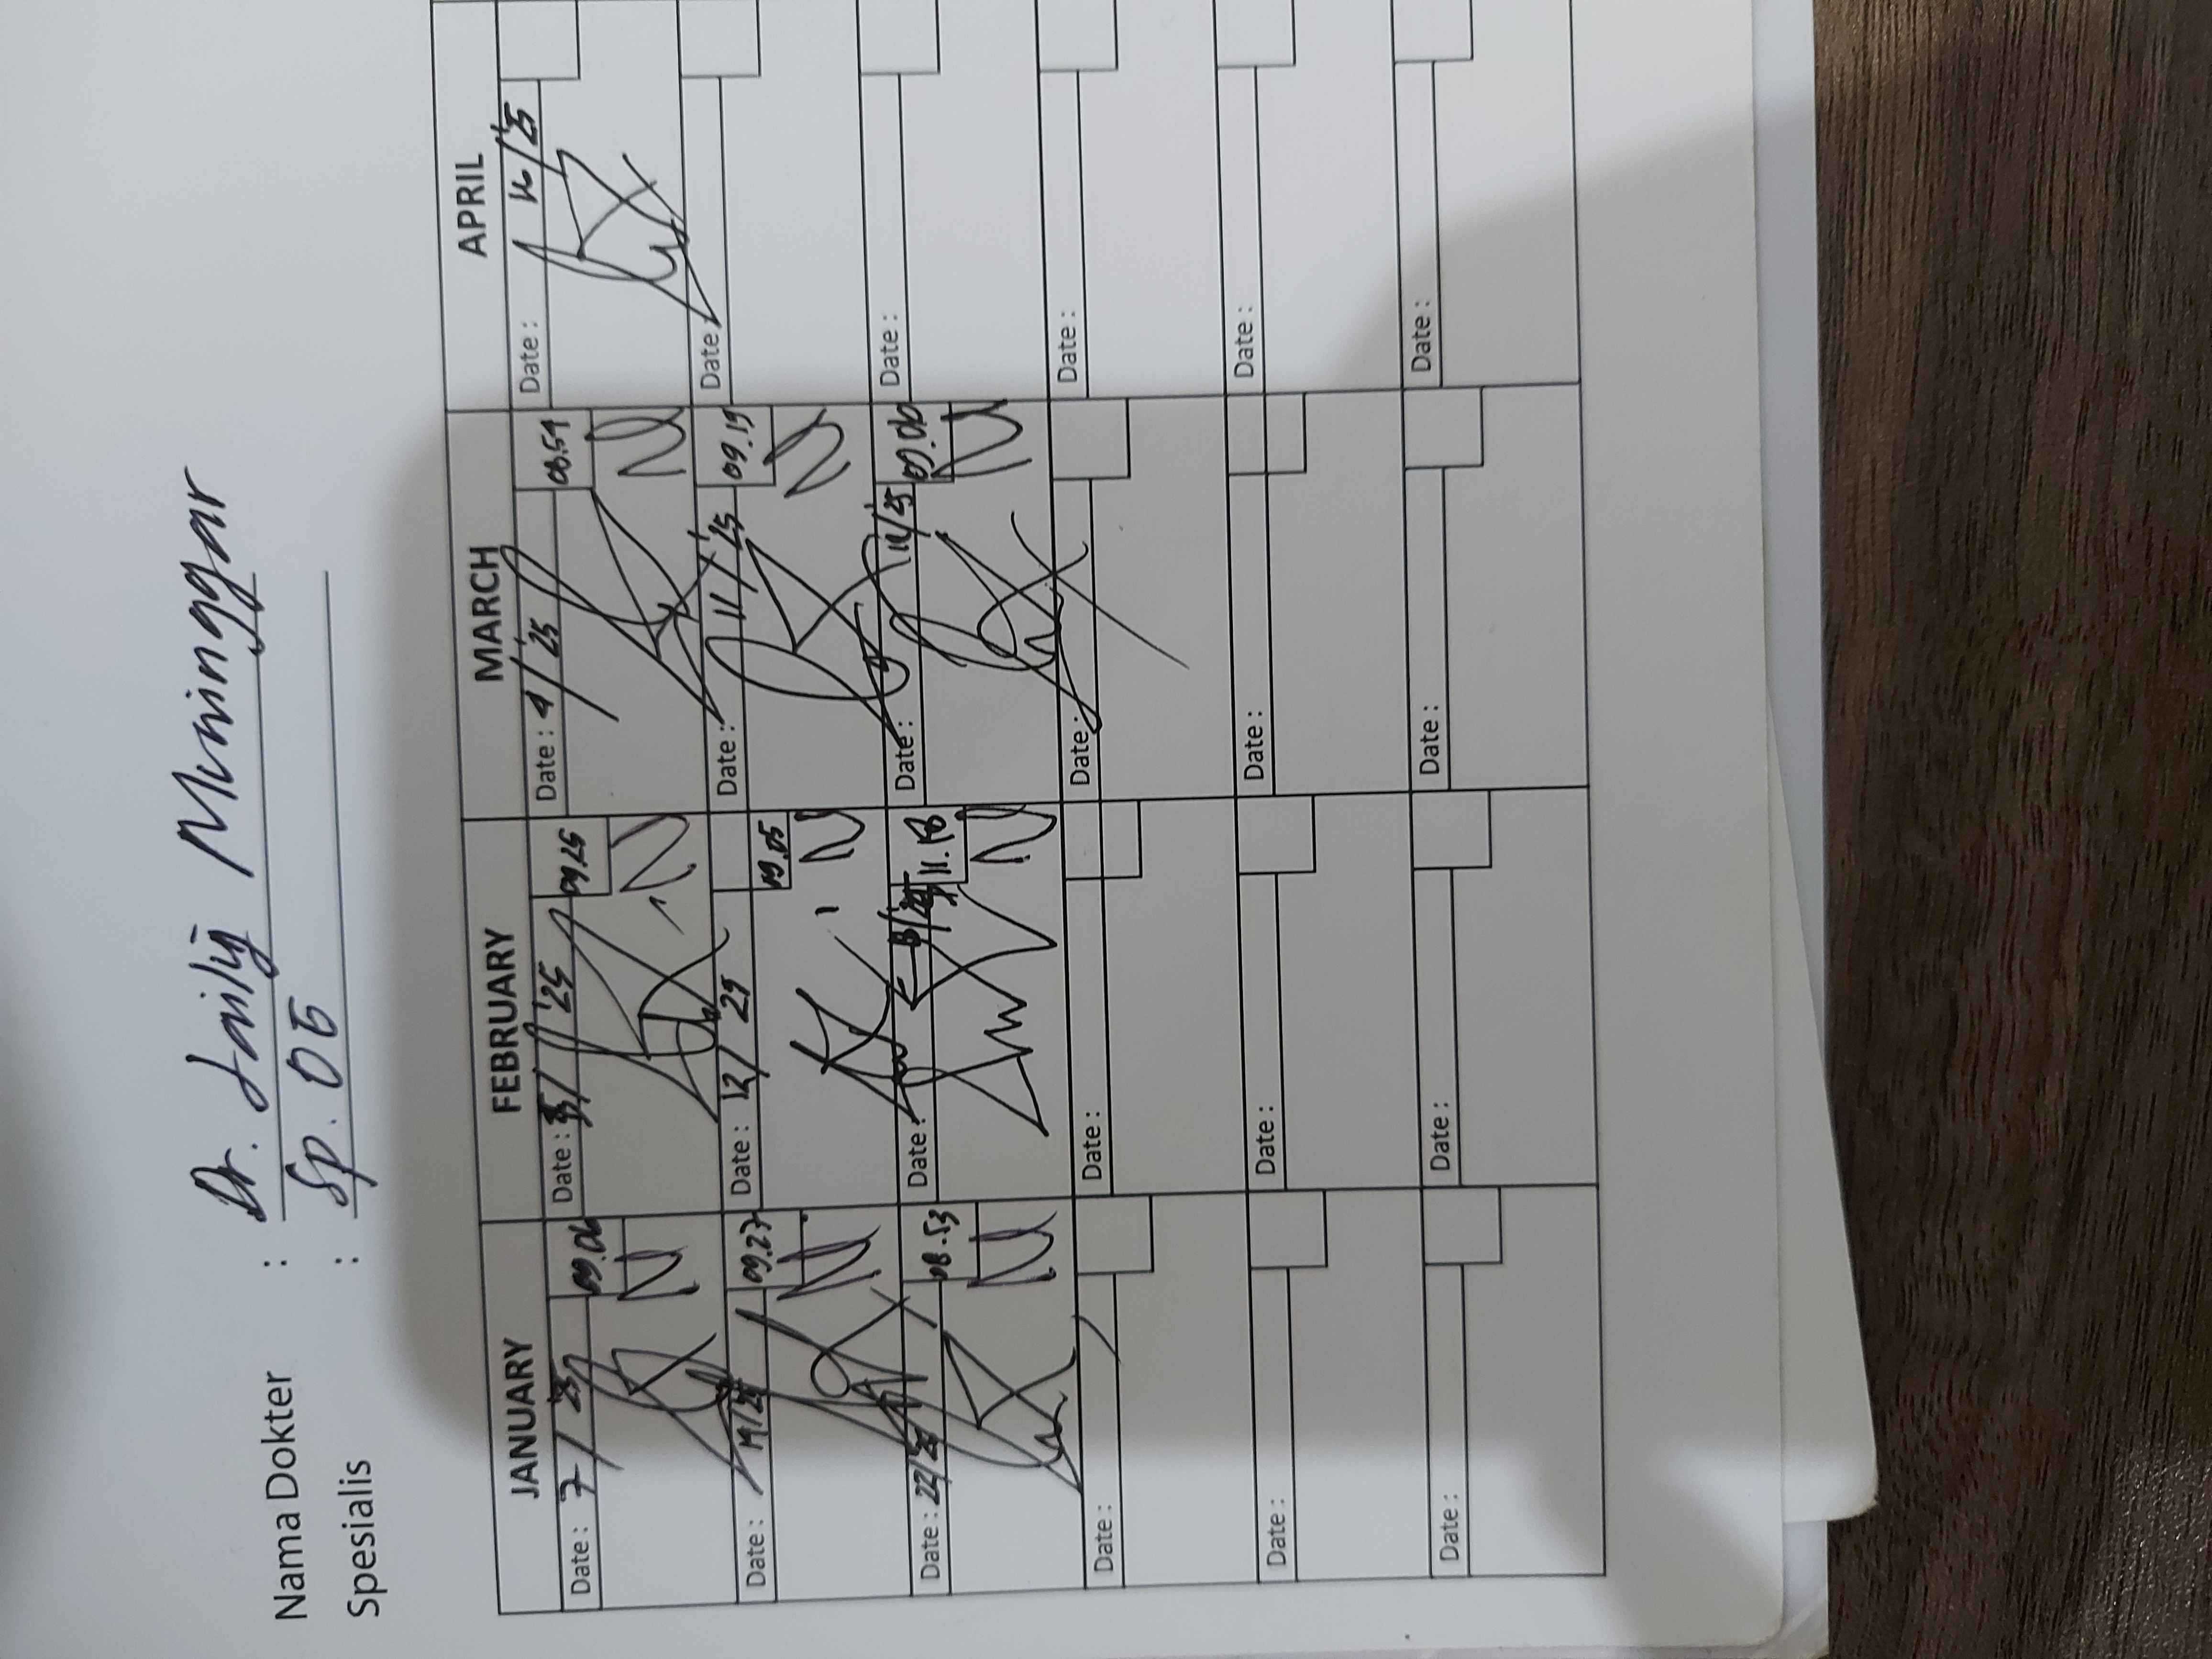 Nama Dokter : Dr. Laily Muninggar
Spesialis : Sp. OG
JANUARY FEBRUARY MARCH APRIL
Date : 7 / 25 09.06 Date : / '25 09.25 Date : 4 / '25 08.59 Date : 16 / '25
Date : 14/25 09.27 Date : 12 / 25 09.05 Date : 11 / '25 09.19 Date :
Date : 22/25 08.53 Date : 11.18 Date : /25 09.06 Date :
Date : Date : Date : Date :
Date : Date : Date : Date :
Date : Date : Date : Date :